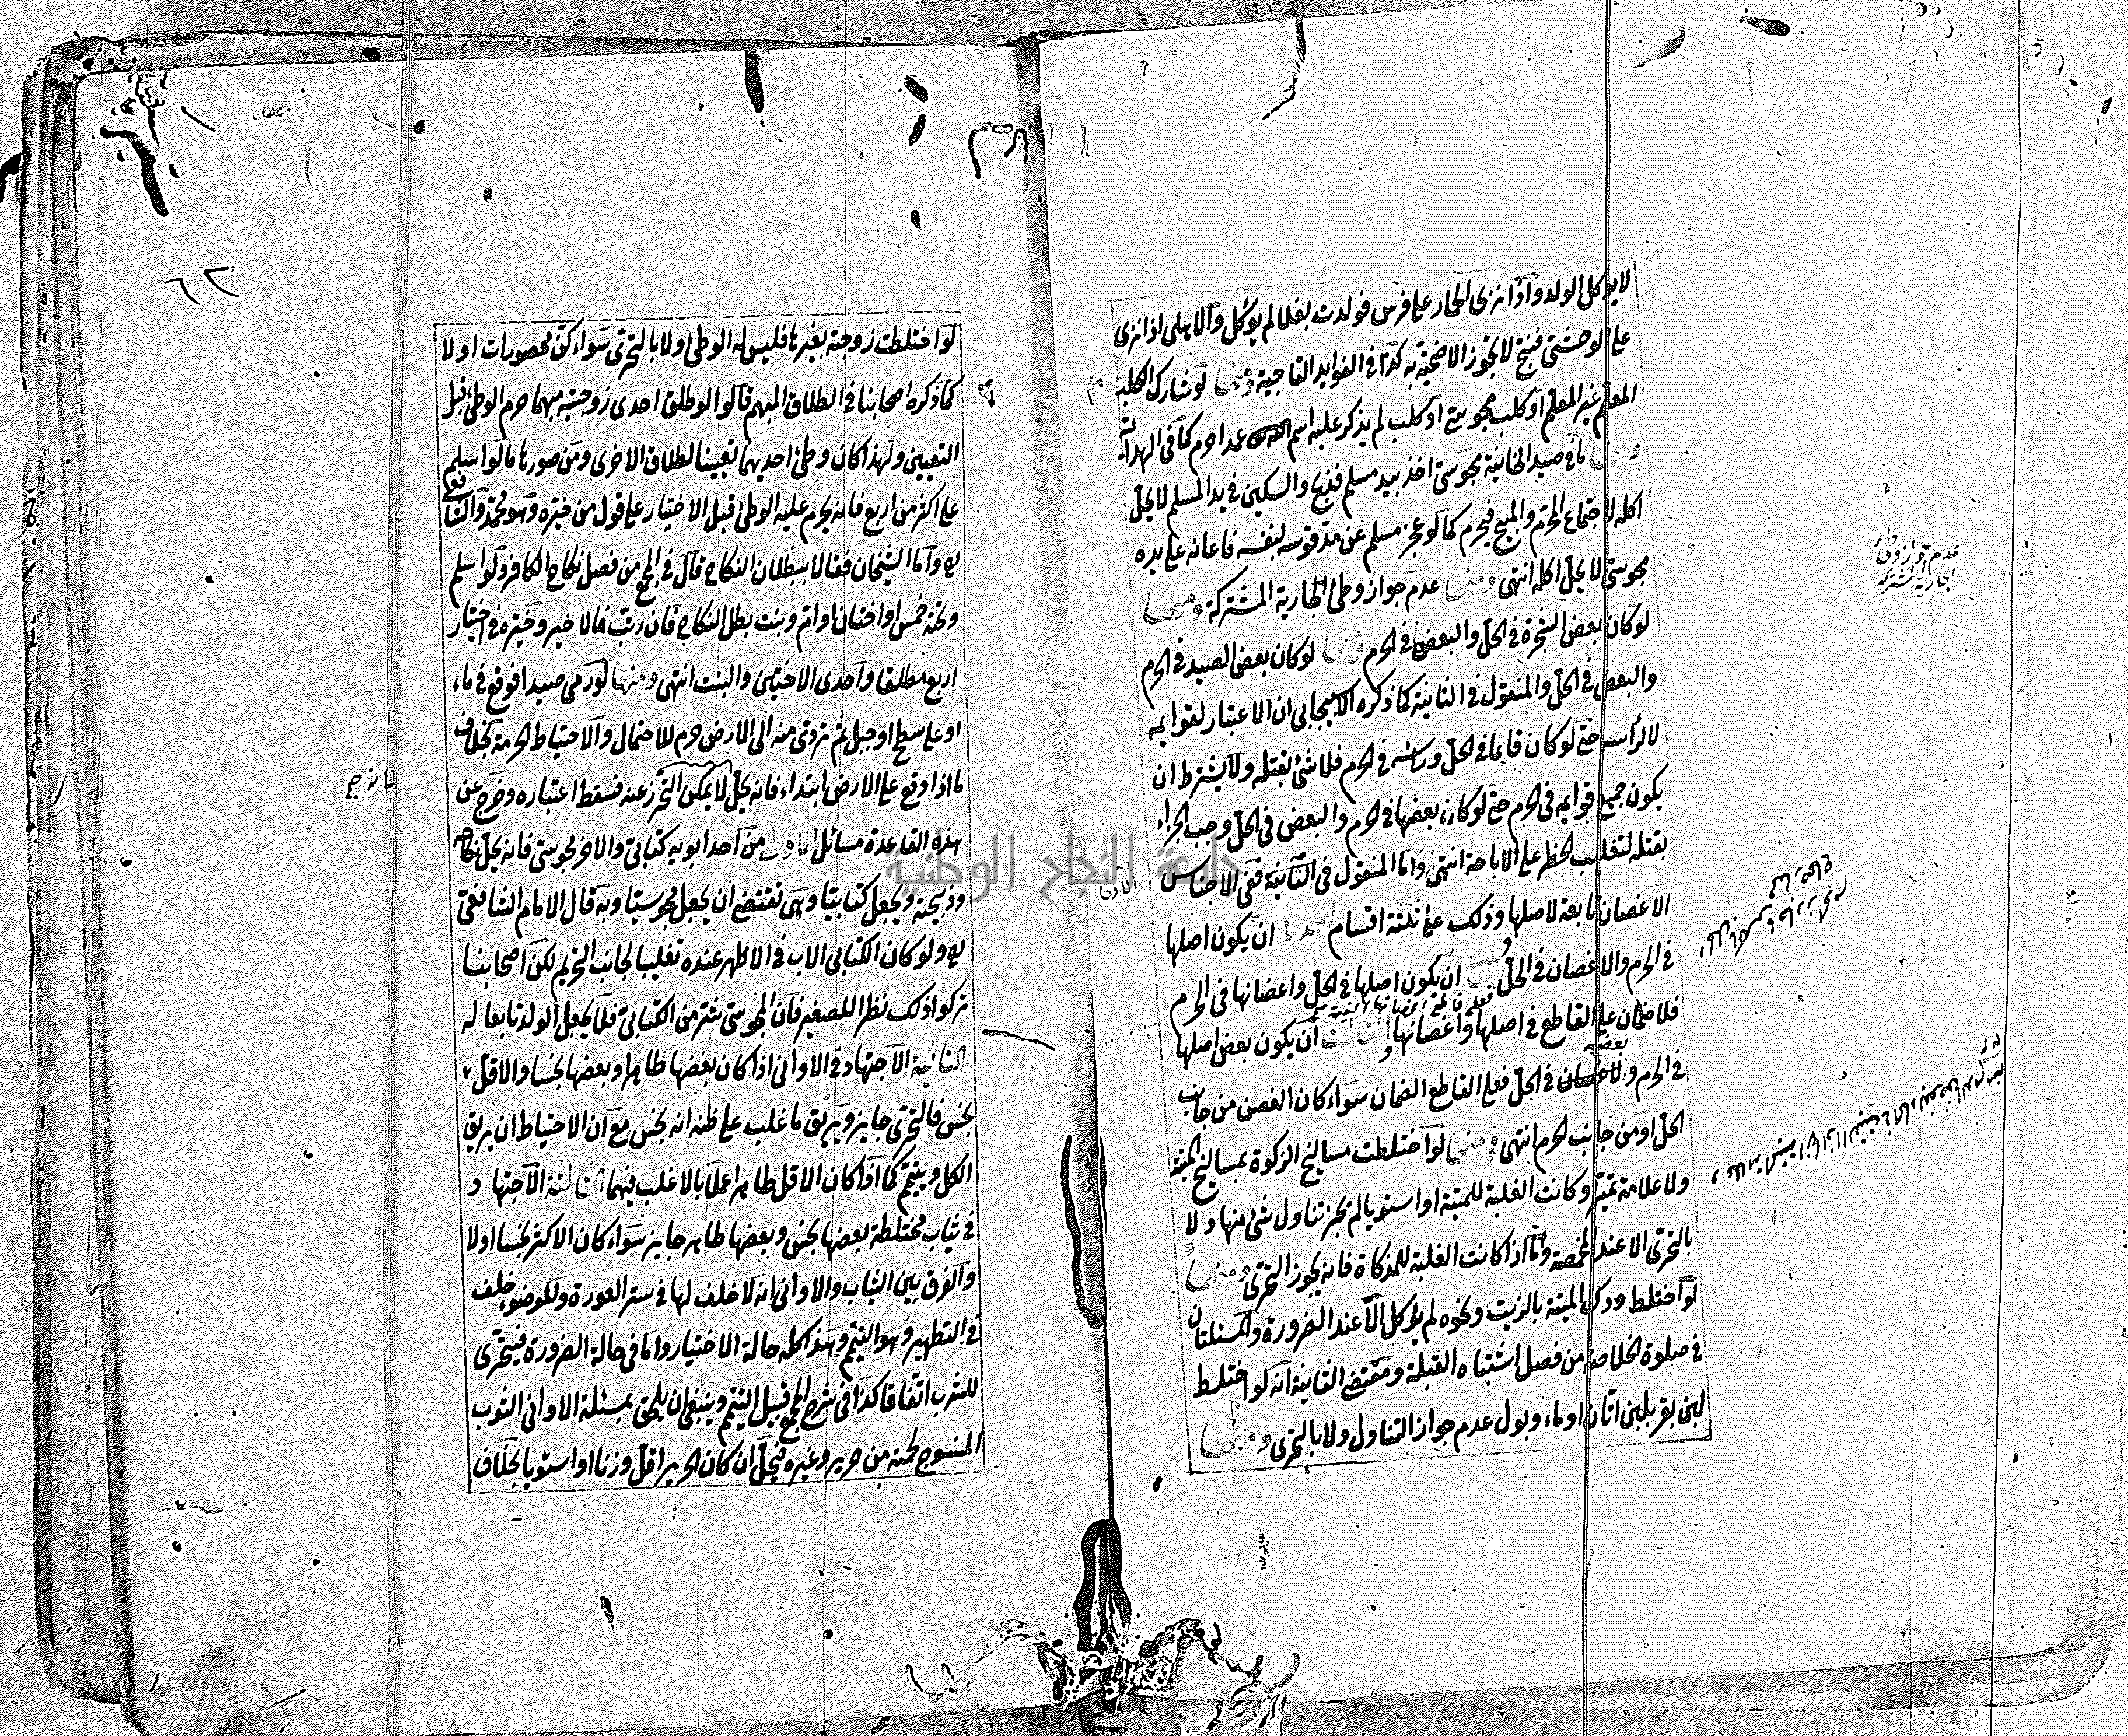 لا يؤكل الولد واذا نزى الحمار على فرس فولدت بغلا لم يؤكل والاهلي اذا نزى
على الوحشي فنتج لا تجوز الاضحية به كذا في الفوايد التاجية ومنها لو شارك الكلب
المعلم غير المعلم او كلب مجوسي او كلب لم يذكر عليه اسم الله عمدا حرم كما في الهداية
ومنها ما في صيد الخانية مجوسي اخذ بيد مسلم فذبح والسكين في يد المسلم لا يحل
اكله لاجتماع المحرم والمبيح فيحرم كما لو عجز مسلم عن مد قوسه بنفسه فاعانه على يده
مجوسي لا يحل اكله انتهى ومنها عدم جواز وطئ الجارية المشتركة ومنها
لو كان بعض الشجرة في الحل والبعض في الحرم ومنها لو كان بعض الصيد في الحرم
والبعض في الحل والمنقول في الثانية كما ذكره الاسبيجابي ان الاعتبار لقوايمه
لا لرأسه حتى لو كان قايما في الحل ورأسه في الحرم فلا شئ بقتله ولا يشترط ان
يكون جميع قوايمه في الحرم حتى لو كان بعضها في الحرم والبعض في الحل وجب الجزاء
بقتله لتغليب الحظر على الاباحة انتهى واما المنقول في الثانية ففي الاجناس
الاولى
الاغصان تابعة لاصلها وذلك على ثلثة اقسام احدها ان يكون اصلها
في الحرم والاغصان في الحل ان يكون اصلها في الحل واغصانها في الحرم
فلا ضمان على القاطع في اصلها واغصانها الثالث ان يكون بعض اصلها
في الحرم والاغصان في الحل فعلى القاطع الضمان سواء كان الغصن من جانب
الحل او من جانب الحرم انتهى ومنها لو اختلطت مساليخ الزكوة بمساليخ الميتة
ولا علامة تميز وكانت الغلبة للميتة او استويا لم يجز تناول شئ منها ولا
بالتحرى الا عند المخمصة واما اذا كانت الغلبة للمذكاة فانه يجوز التحرى ومنها
لو اختلط ودك الميتة بالزيت ونحوه لم يؤكل الا عند الضرورة والمسئلتان
في صلوة الخلاصة من فصل اشتباه القبلة ومقتضى الثانية انه لو اختلط
لبن بقر بلبن اتان او ماء وبول عدم جواز التناول ولا بالتحرى ومنها
عدم جواز وطئ
الجارية المشتركة
٦٢
لو اختلطت زوجته بغيرها فليس له الوطئ ولا بالتحرى سواء كن محصورات او لا
كما ذكره اصحابنا في الطلاق المبهم قالوا لو طلق احدى زوجتيه مبهما حرم الوطئ قبل
التعيين ولهذا كان وطئ احديهما تعيينا لطلاق الاخرى ومن صورها ما لو اسلم
على اكثر من اربع فانه يحرم عليه الوطئ قبل الاختيار على قول من خيره وهو محمد والشافعي
ره واما الشيخان فقالا ببطلان النكاح قال في المجمع من فصل نكاح الكافر ولو اسلم
وتحته خمس او اختان او ام وبنت بطل النكاح فان رتب فالاخير وخيره في اختيار
اربع مطلقا واحدى الاختين والبنت انتهى ومنها لو رمى صيدا فوقع في ماء
او على سطح او جبل ثم تردى منه الى الارض حرم للاحتمال والاحتياط الحرمة بخلاف
ما اذا وقع على الارض ابتداء فانه يحل لا يمكن التحرز عنه فسقط اعتباره وخرج عن
هذه القاعدة مسائل الاولى من احد ابويه كتابى والاخر مجوسى فانه يحل نكاحه
وذبيحته ويجعل كتابيا وهي تقتضى ان يجعل مجوسيا وبه قال الامام الشافعى
ره ولو كان الكتابى الاب في الاظهر عنده تغليبا لجانب التحريم لكن اصحابنا
تركوا ذلك نظرا للصغير فان المجوسى شر من الكتابى فلا يجعل الولد تابعا له
الثانية الاجتهاد في الاوانى اذا كان بعضها طاهرا وبعضها نجسا والاقل
نجس فالتحرى جايز ويريق ما غلب على ظنه انه نجس مع ان الاحتياط ان يريق
الكل ويتيمم كما اذا كان الاقل طاهرا عملا بالاغلب فيهما الثالثة الاجتهاد
في ثياب مختلطة بعضها نجس وبعضها طاهر جايز سواء كان الاكثر نجسا او لا
والفرق بين الثياب والاوانى انه لا خلف لها في ستر العورة وللوضوء خلف
في التطهير وهو التيمم وهذا كله حالة الاختيار واما في حالة الضرورة فيتحرى
للشرب اتفاقا كذا في شرح المجمع قبيل التيمم وينبغى ان يلحق بمسئلة الاوانى الثوب
المنسوج لحمته من حرير وغيره فيحل ان كان الحرير اقل وزنا او استويا بخلاف